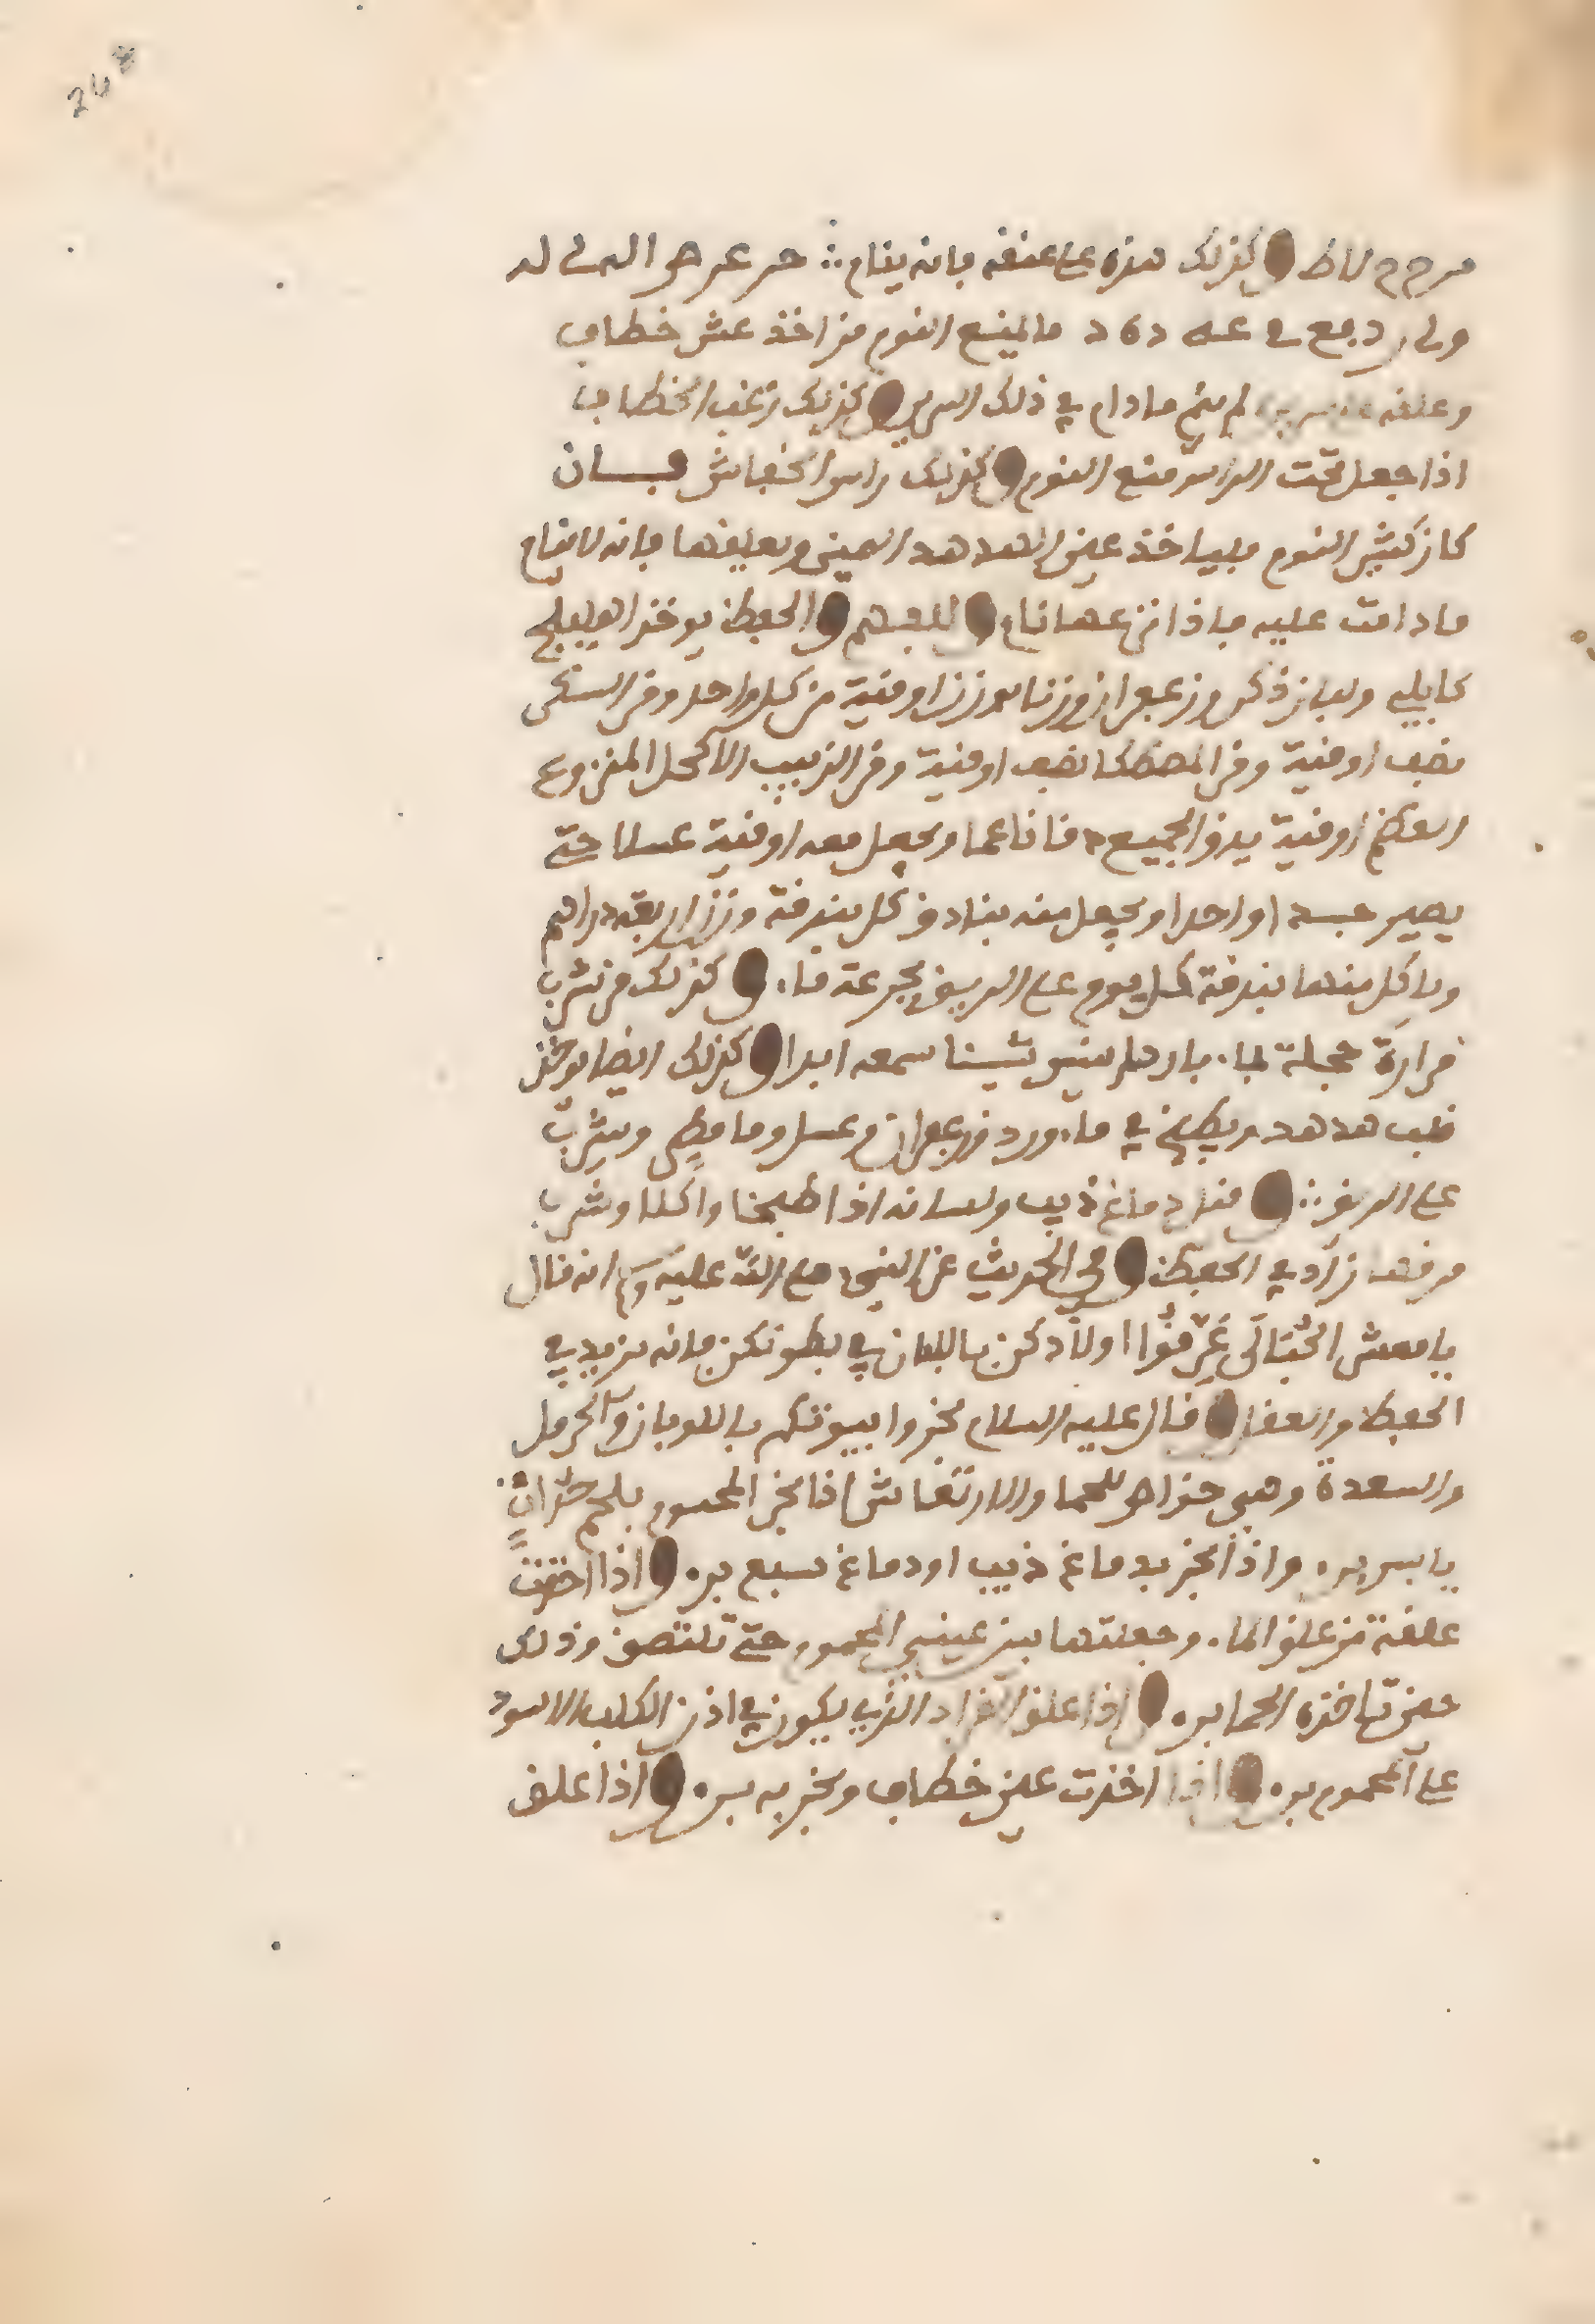 248
وكذلك هذه على عنقه فانه ينام ∴
ما يمنع النوم من اخذ عش خطاف
وعلقه لم ينم ما دام في ذلك السرير وكذلك زغب الخطاف
اذا جعل تحت الراس منع النوم وكذلك راس الخفاش فــان
كان كثير النوم فلياخذ عين الهدهد اليمنى ويعلقها فانه لا ينام
ما دامت عليه فاذا نزعها نام وللفهم والحفظ يوخذ اهليلج
كابلي ولبان ذكر وزعفران وزنا بوزن اوقية من كل واحد ومن السكر
نصف اوقية ومن المصطكا نصف اوقية ومن الزبيب الاكحل المنزوع
العظم اوقية يدق الجميع دقا ناعما ويجعل معه اوقية عسلا حتى
يصير جسدا واحدا ويجعل منه بنادق كل بندقة وزن اربعة دراهم
وياكل منها بندقة كل يوم على الريق بجرعة ماء وكذلك من شرب
مرارة حجلة بماء بارد لم ينس شيئا سمعه ابدا وكذلك ايضا يوخذ
قلب هدهد ويطبخ في ماء ورد وزعفران وعسل وما مطر ويشرب
على الريق ∴ ومنه دماغ ذيب ولسانه اذا طبخا واكلا وشرب
مرقها زاد في الحفظ وفي الحديث عن النبي صلى الله عليه وسلم انه قال
يا معشر الحبالى غرقوا اولادكن باللبان في بطونكن فانه يزيد في
الحفظ والعقل وقال عليه السلام بخروا بيوتكم باللوبان والحرمل
والسعدة وهي خواص للحما والارتعاش اذا بخر المحموم بلحم حيوان
يابس بره واذا بخر بدماغ ذيب او دماغ سبع بره واذا اخذت
علقة من علق الماء وجعلتها بين عيني المحموم حتى تلتصق وذلك
حين تاخذه الحما بره واذا علق القراد الذي يكون في اذن الكلب الاسود
على المحموم بره واذا اخذت عين خطاف وبخر به بره واذا علق